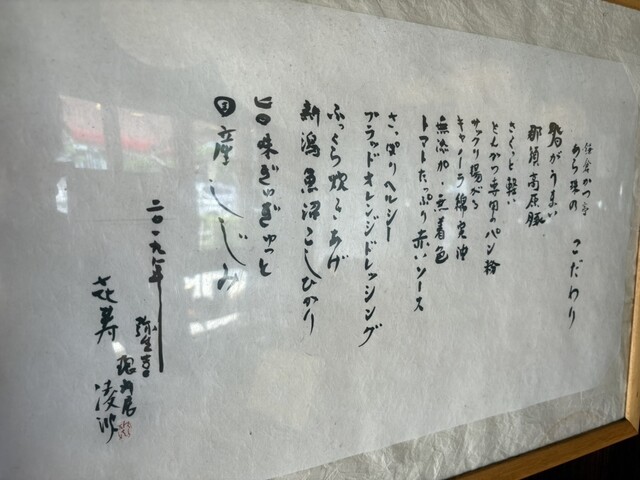 鎌倉かつ亭
あら珠の こだわり
脂がうまい
那須高原豚
さくっと軽い
とんかつ専用のパン粉
サックリ揚がる
キャノーラ綿実油
無添加・無着色
トマトたっぷり赤いソース
さっぱりヘルシー
ブラッドオレンジドレッシング
ふっくら炊きあげ
新潟魚沼こしひかり
旨味ぎゅぎゅっと
国産しじみ
二〇一九年
弥生吉日
花寿
凌沙